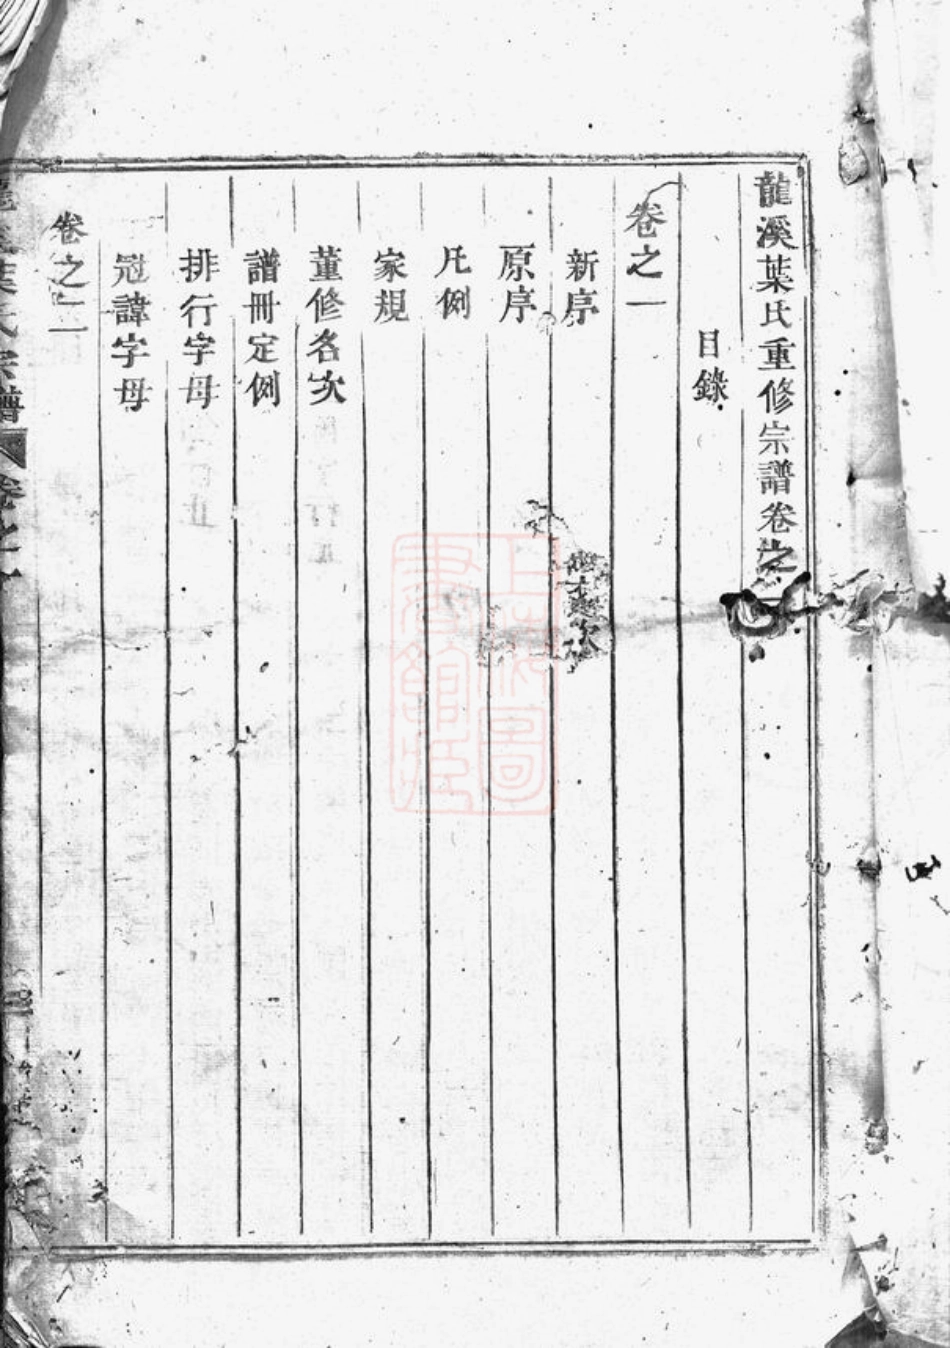 龍溪葉氏重修宗譜卷之一
目錄
卷之一
新序
原序
凡例
家規
董修名次
譜冊定例
排行字母
冠諱字母
卷之二
氏宗譜 卷之一
上海圖書館藏